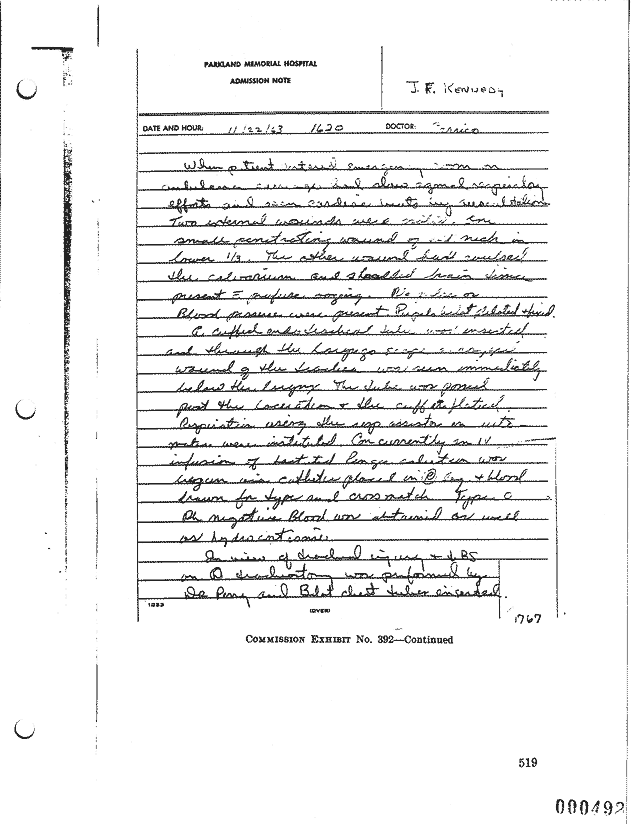 PARKLAND MEMORIAL HOSPITAL
ADMISSION NOTE
J. F. KENNEDY
DATE AND HOUR: 11/22/63 1620 DOCTOR: Carrico
When patient entered emergency room on
ambulance carriage had slow agonal respiratory
efforts and seen cardiac
Two external wounds were noted. One
small penetrating wound of neck in
lower 1/3. The other wound had avulsed
the calvarium and shredded brain tissue
present profuse oozing. No pulse or
Blood pressure were present. Pupils dilated + fixed.
A cuffed endotracheal tube was inserted
and through the laryngoscope a
wound of the trachea was seen immediately
below the larynx. The tube was passed
past the laceration + the cuff inflated.
Respiration using the resp assistor on auto-
matic were instituted. Concurrently an IV
infusion of lactated Ringer solution was
begun via catheter placed in leg + blood
drawn for type and crossmatch. Type O
Rh negative Blood was obtained as well
as hydrocortisone.
In view of tracheal injury + ↓ BS
on tracheostomy was performed by
Dr. Perry and Bilat chest tubes inserted.
1023
(OVER)
1767
COMMISSION EXHIBIT No. 392—Continued
519
000492